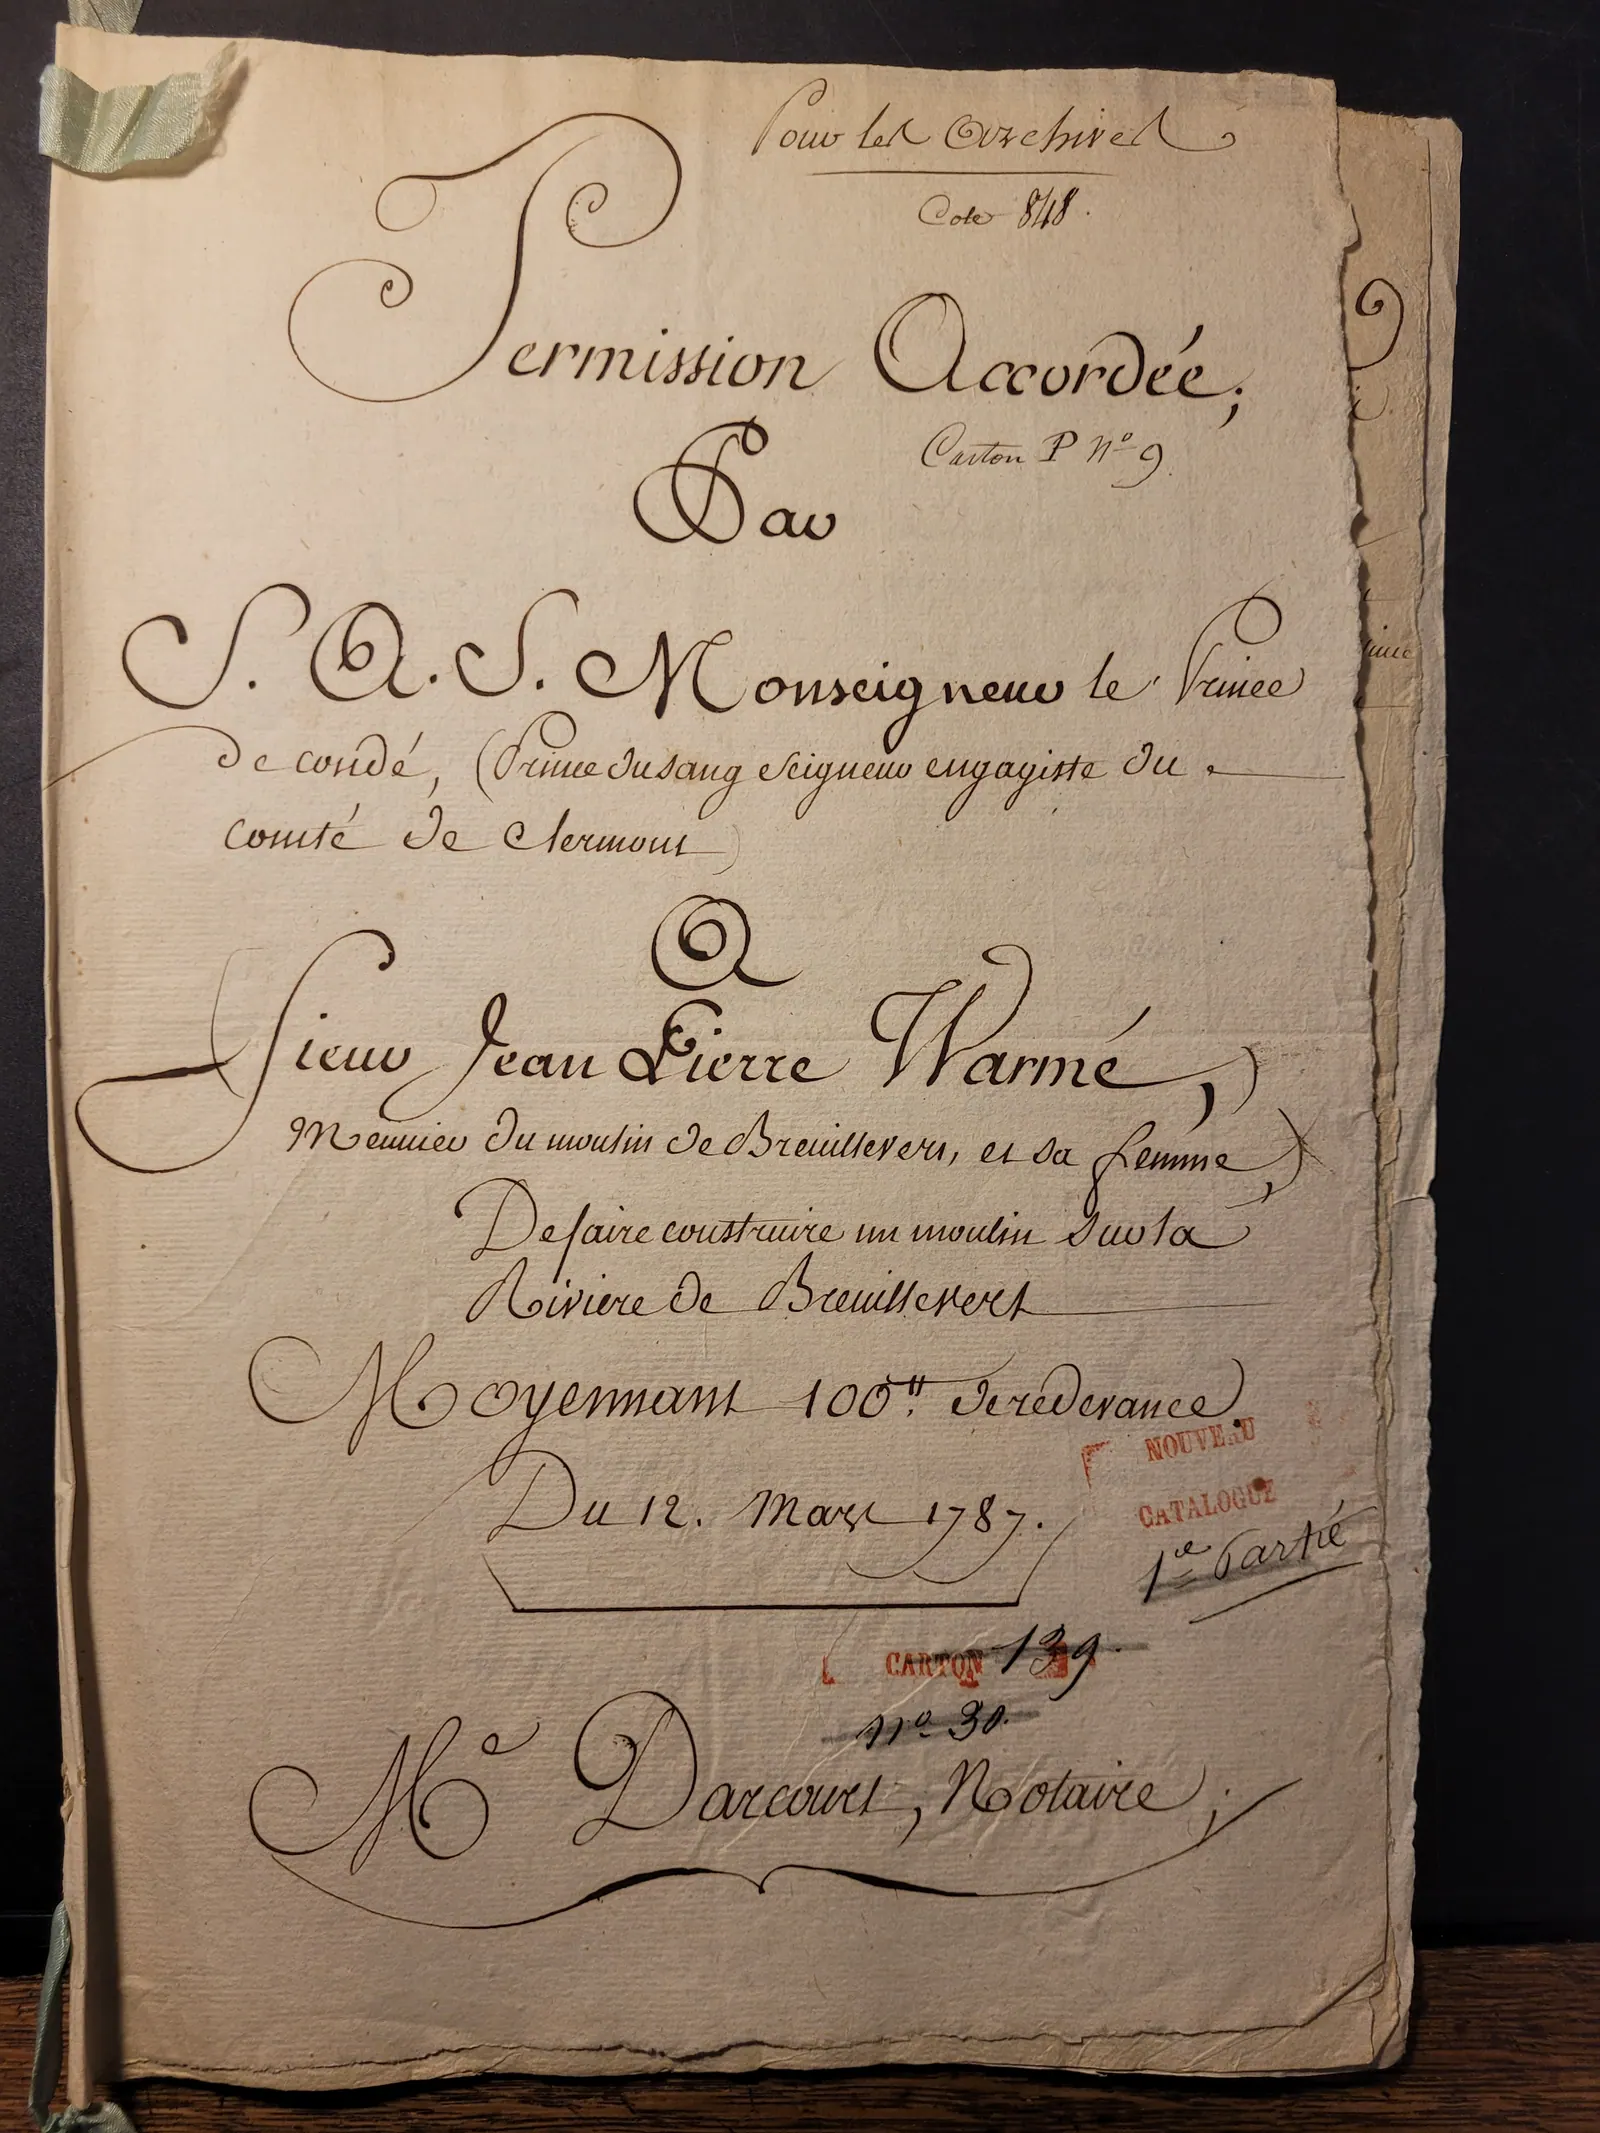 Pour les Archives
Cote 848.
Permission Accordée;
Carton P Nº 9.
Par
S. A. S. Monseigneur le Prince
de condé, (Prince du sang Seigneur engagiste du
comté de Clermont)
A
Sieur Jean Pierre Warmé,
Meunier du moulin de Breuillevert, et sa femme,
De faire construire un moulin sur la
Riviere de Breuillevert
Moyennant 100tt. de redevance
Du 12. Mars 1787.
NOUVEAU
CATALOGUE
1re Partie
CARTON 139.
nº 30.
Me Darcourt, Notaire;